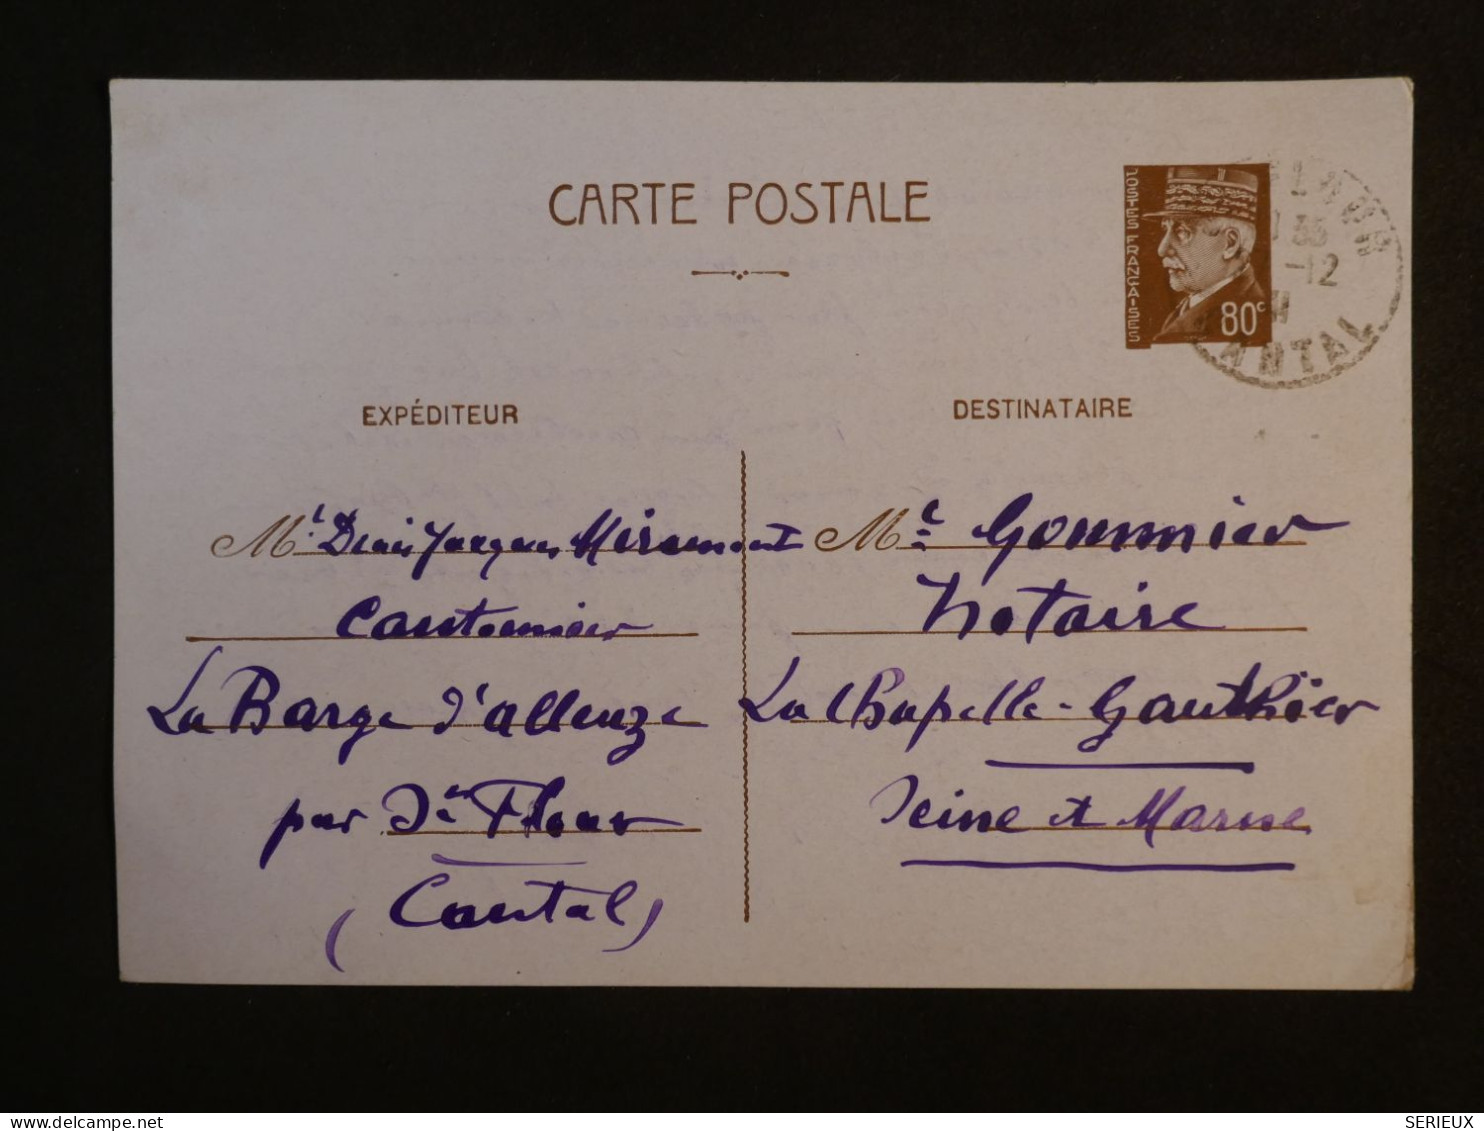 CARTE POSTALE
POSTES FRANÇAISES
80c
FLOUR
35
-12
CANTAL
EXPÉDITEUR
DESTINATAIRE
Mr Denis Jacques Miramont
Cantonnier
La Barge d'alleuze
par St Flour
(Cantal)
Me Goumnier
Notaire
La Chapelle-Gauthier
Seine et Marne
SERIEUX